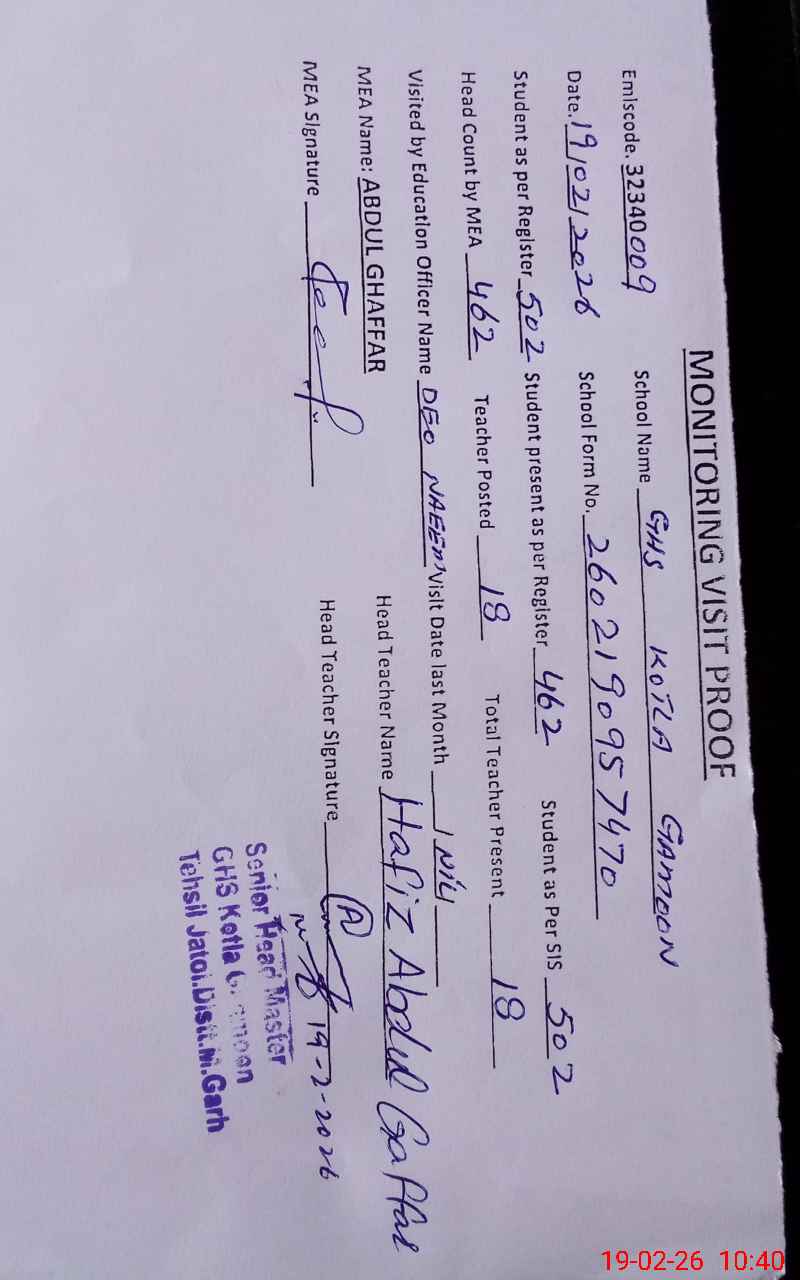 MONITORING VISIT PROOF
Emiscode. 32340009 School Name GHS KOTLA GAMOON
Date. 19/02/2026 School Form No. 2602190957470
Student as per Register 502 Student present as per Register 462 Student as Per SIS 502
Head Count by MEA 462 Teacher Posted 18 Total Teacher Present 18
Visited by Education Officer Name DEO NAEEM Visit Date last Month NIL
MEA Name: ABDUL GHAFFAR Head Teacher Name Hafiz Abdul Gaffar
MEA Signature Head Teacher Signature
19-2-2026
Senior Head Master
GHS Kotla Gamoon
Tehsil Jatoi.Distt.M.Garh
19-02-26 10:40